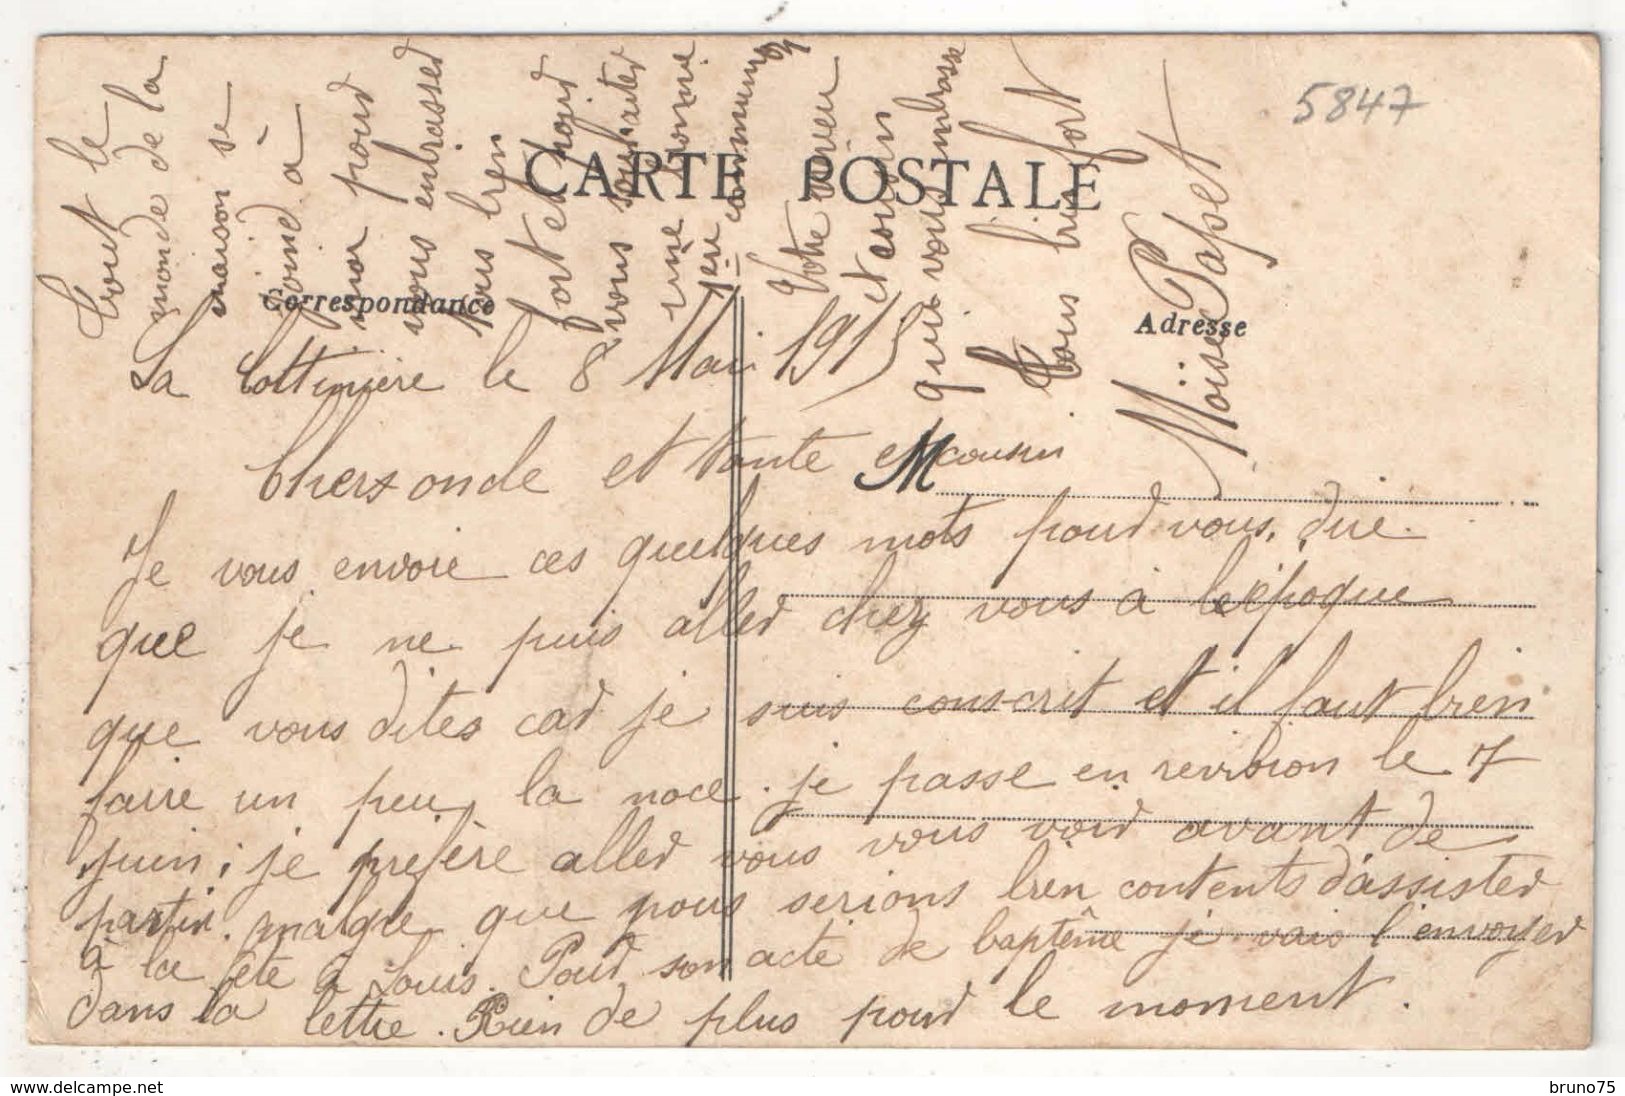 5847
CARTE POSTALE
Correspondance
Adresse
M
La Cottinière le 8 Mai 1915
Chers oncle et tante et cousin
Je vous envoie ces quelques mots pour vous dire
que je ne puis aller chez vous à l'époque
que vous dites car je suis conscrit et il faut bien
faire un peu la noce. je passe en revision le 7
juin; je prefère aller vous vous voir avant de
partir. malgre que nous serions bien contents d'assister
à la fête à Louis. Pour son acte de baptême je vais l'envoyer
dans la lettre. Rien de plus pour le moment.
Tout le
monde de la
maison se
joind à
moi pour
vous enbrasser
tous bien
fort et pour
vous souhaiter
une bonne
1ère communion
Votre neveu
et cousin
qui vous embrasse
tous bien fort
Moïse Papet
www.delcampe.net
bruno75